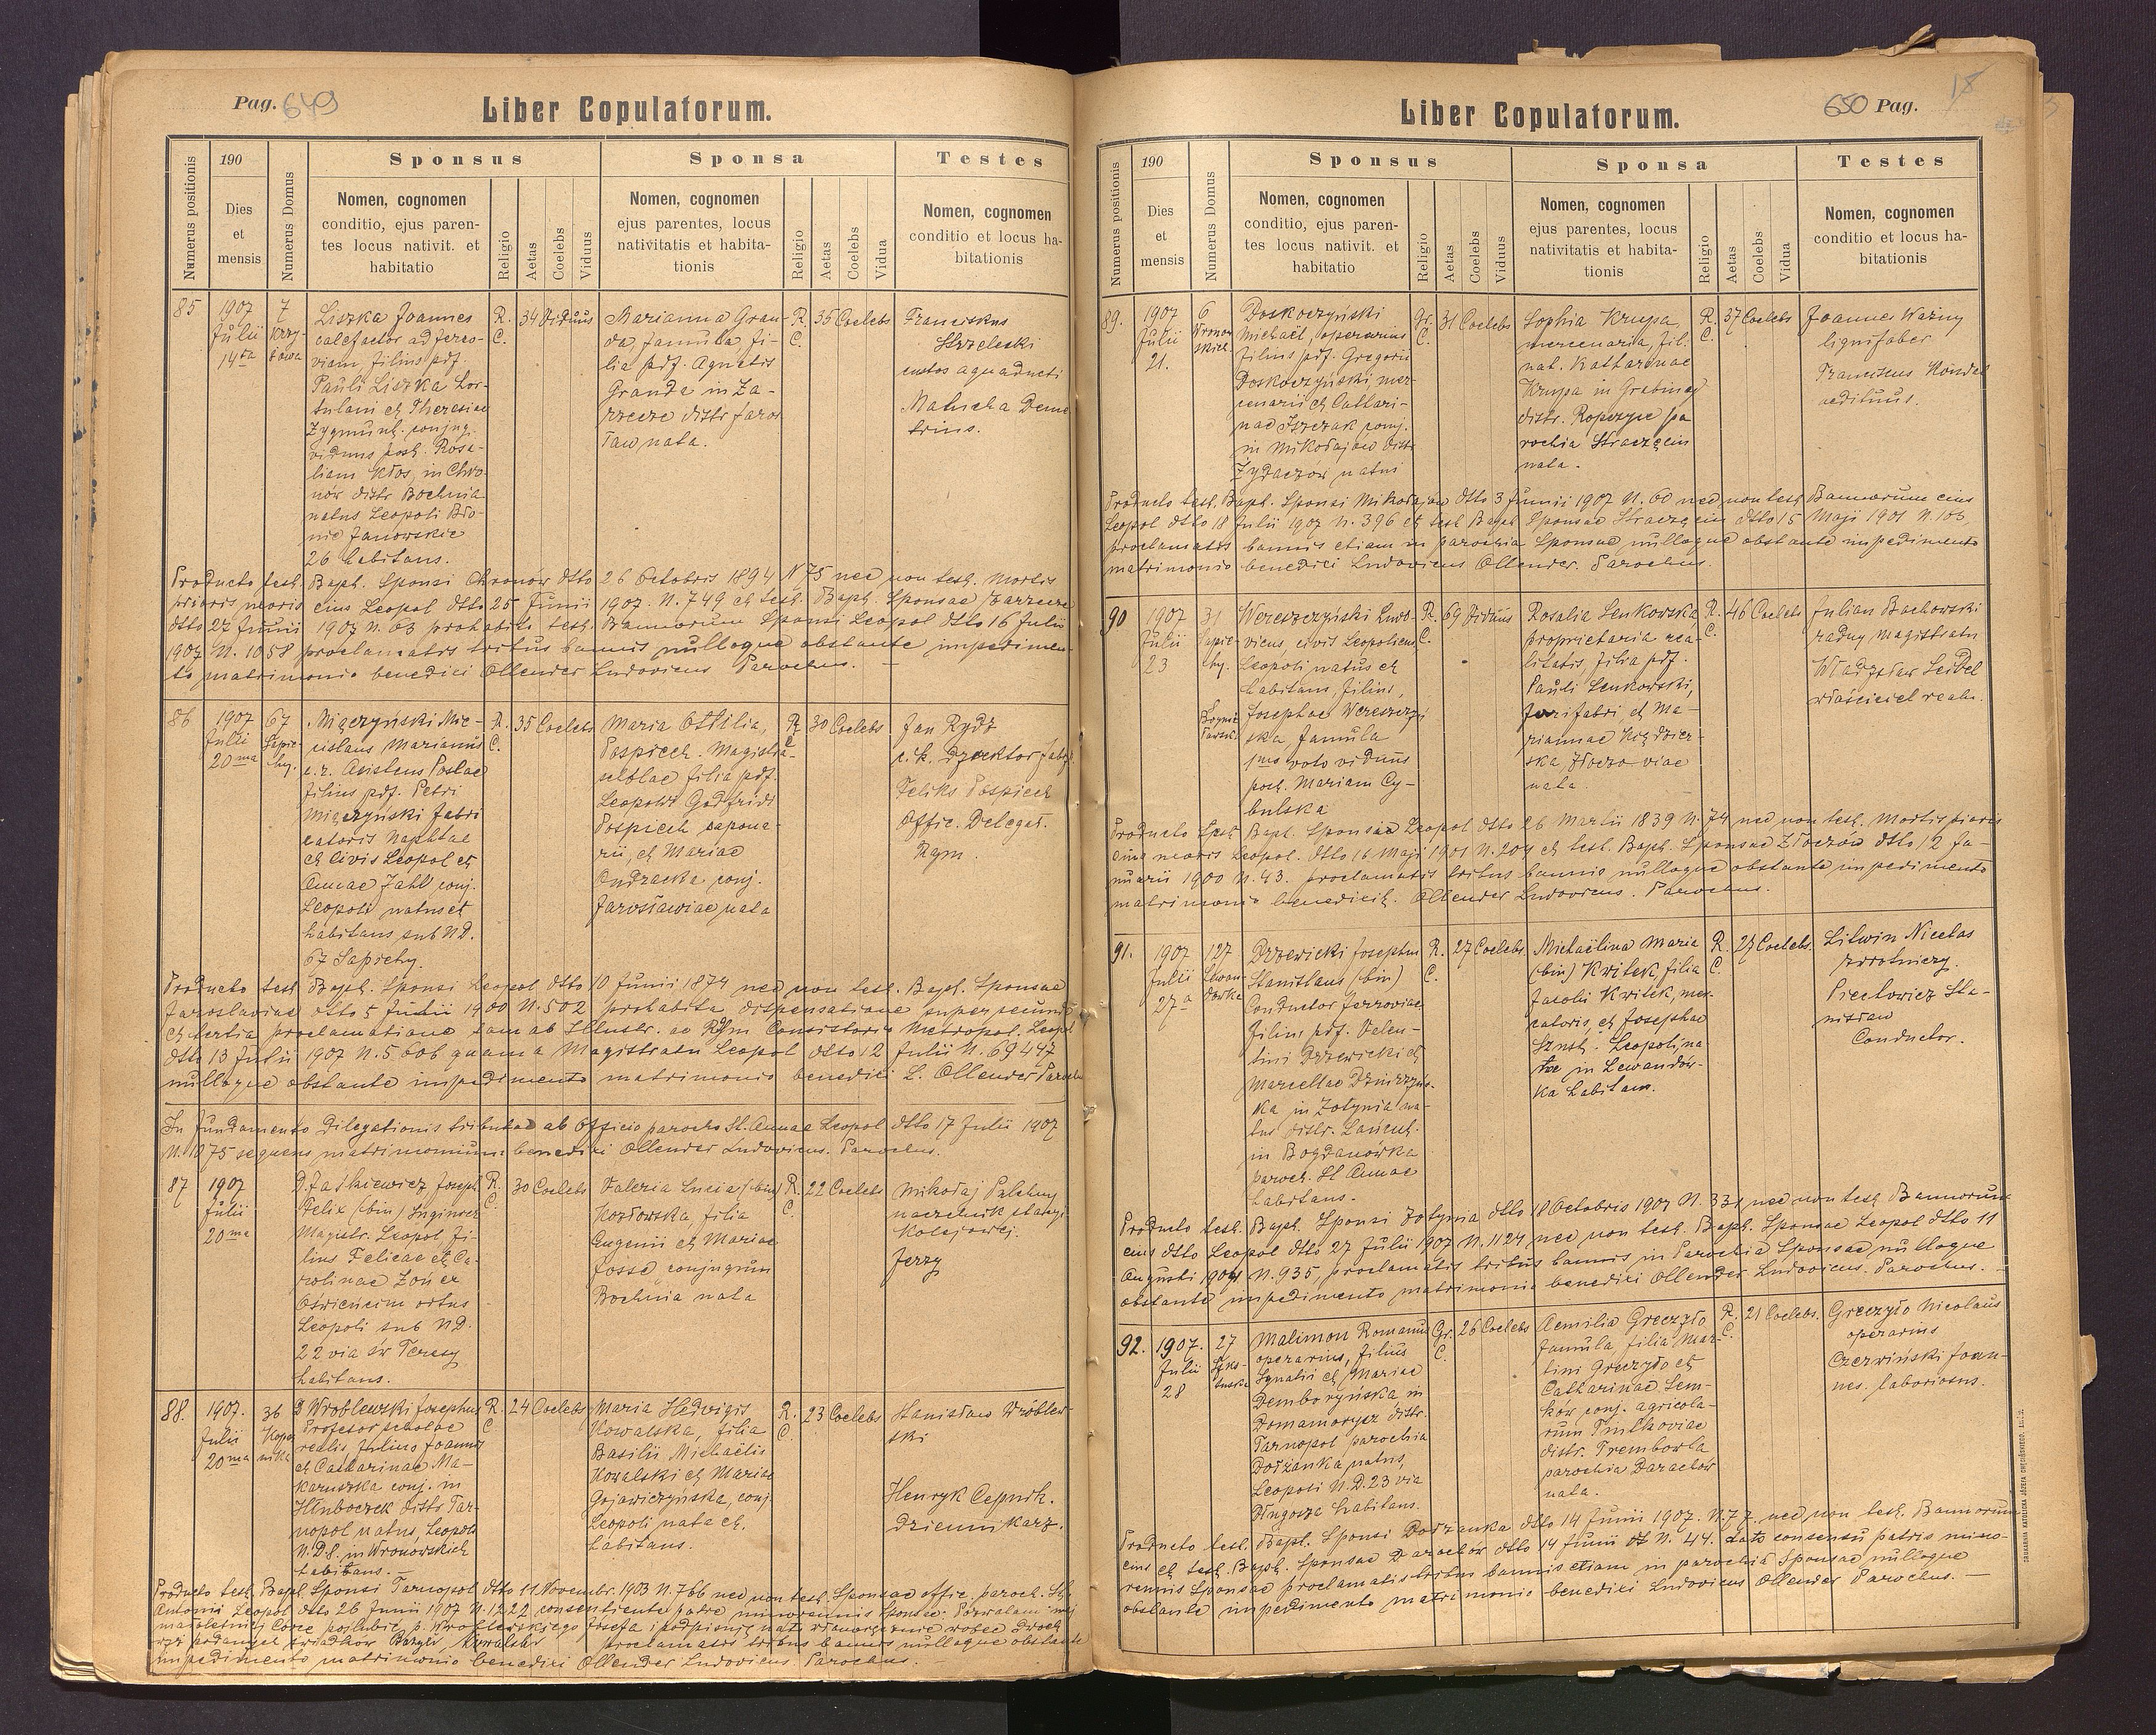 Pag. 649
Liber Copulatorum.
Numerus positionis
190
Dies
et
mensis
Numerus Domus
Sponsus
Nomen, cognomen
conditio, ejus paren-
tes locus nativit. et
habitatio
Religio
Aetas
Coelebs
Viduus
Sponsa
Nomen, cognomen
ejus parentes, locus
nativitatis et habita-
tionis
Religio
Aetas
Coelebs
Vidua
Testes
Nomen, cognomen
conditio et locus ha-
bitationis
85
1907
Julii
14ta
7
Krzy-
żowa
Liszka Joannes
calefactor ad ferro-
viam filius pdf.
Pauli Liszka hor-
tulani et Theresiae
Zygmunt conjug.
viduus post. Rosa-
liam Kłos, in Chro-
nów distr Bochnia
natus Leopoli Bło-
nie Janowskie
26 habitans.
R.
C.
34
Viduus
Marianna Gran-
da famula fi-
lia pdf. Agnetis
Granda in Za-
rzecze distr Jaros
ław nata.
R.
C.
35
Coelebs
Franciskus
Strzelecki
custos aquaducti
Matucha Deme
trius.
Producto test. Bapt. Sponsi Chronów dtto 26 Octobris 1894 N 75 nec non test. Mortis
prioris uxoris eius Leopol dtto 25 Junii 1907. N. 749 et test. Bapt. Sponsae Zarzecze
dtto 27 Junii 1907 N. 63 prohabiti test. Bannorum Sponsi Leopol dtto 16 Julii
1907 N. 1058 proclamatis tribus bannis nulloque obstante impedimen-
to matrimonio benedixi Ollender Ludovicus Parochus.
86
1907
Julii
20ma
67
Sapie-
hy.
Mięczyński Mie-
cislaus Marianus
c.r. Asistens Postae
filius pdf. Petri
Mięczyński fabri
catoris Naphtae
et Civis Leopol et
Annae Jahl conj.
Leopoli natus et
habitans sub ND.
67 Sapiehy.
R.
C.
35
Coelebs
Maria Ottilia,
Pospiech - Magistra
scholae filia pdf.
Leopold Godfrid
Pospiech sapona-
rii, et Mariae
Ondracka conj.
Jarosławiae nata
R.
C.
30
Coelebs
Jan Rydz
c.k. Dyrektor fabr.
Feliks Pospiech
Offic. Delegat.
Rzm.
Producto test Bapt. Sponsi Leopol dtto 10 Junii 1874 nec non test. Bapt. Sponsae
Jaroslaviae dtto 5 Junii 1900 N. 502 prohabita dispensatione super secunda
et tertia proclamatione tam ab Illustr. ac Rdssm Consistorio Metropol. Leopol
dtto 13 Julii 1907 N. 5606 quam a Magistratu Leopol dtto 12 Julii N. 69447
nulloque obstante impedimento matrimonio benedixi L. Ollender Paroch
In fundamento Dilegationis tributae ab Officio parochi St. Annae Leopol dtto 17 Julii 1907
N. 1075 sequens matrimonium benedixi Ollender Ludovicus. Parochus.
87
1907
Julii
20ma
Felix (bin) Inginier
Magistr. Leopol, fi-
lius Felicae et Ca-
rolinae Zoner
Oświęcim ortus
Leopoli sub ND.
22 via św Teresy
habitans.
R.
C.
30
Coelebs
Valeria Lucia (bin)
Kozłowska, filia
Eugenii et Mariae
Josse conjugum
Bochnia nata
R.
C.
22
Coelebs
Mikołaj
naczelnik stacyi
Kolejowej.
Jerzy
88.
1907.
Julii
20ma
36
Koper
nika
D Wroblewski Josephus
Profesor scholae
realis, filius Joannis
et Catharinae Ma-
karuszka conj. in
Hłuboczek distr Tar-
nopol natus, Leopoli
N.D.8. in Wronowskich
habitans.
R.
C
24
Coelebs
Maria Hedvigis
Kowalska, filia
Basilii Michaëlis
Kowalski et Mariae
Gojawiczyńska, conj.
Leopoli nata et
habitans.
R.
C.
23
Coelebs
Stanisław Wróblew-
ski
Henryk Cepnik.
dziennikarz.
Producto test. Bapt. Sponsi Tarnopol dtto 11 Novembr. 1903 N. 766 nec non test. Sponsae offic. paroch. St.
Antonii Leopol dtto 26 Junii 1907 N. 1222 consentiente patre minorennis Sponsae: Pozwalam mej
małoletniej Córce poślubić p. Wroblewskiego Józefa i podpisuję
świadków Bazyli Kowalski proclamatis tribus bannis nulloque obstante
impedimento matrimonio benedixi Ollender Ludovicus. Parochus.
Liber Copulatorum.
650 Pag.
15
Numerus positionis
190
Dies
et
mensis
Numerus Domus
Sponsus
Nomen, cognomen
conditio, ejus paren-
tes locus nativit. et
habitatio
Religio
Aetas
Coelebs
Viduus
Sponsa
Nomen, cognomen
ejus parentes, locus
nativitatis et habita-
tionis
Religio
Aetas
Coelebs
Vidua
Testes
Nomen, cognomen
conditio et locus ha-
bitationis
89.
1907
Julii
21.
6
Wronow
skich
Doskoczyński
Michaël, operarius
filius pdf. Gregorii
Doskoczyński, mer-
cenarii et Cathari-
nae Iszczak conj.
in Mikołajow distr
Żydaczów natus
Gr.
C.
31
Coelebs
Sophia Krupa,
mercenaria, fil.
nat. Katharinae
Krupa in Grabiny
distr. Ropczyce pa
rochia Straszęcin
nata.
R.
C.
37
Coelebs
Joannes Ważny
lignifaber
Franciscus Hondel
aedituus.
Producto test. Bapt. Sponsi Mikołajow dtto 3 Junii 1907 N. 60 nec non test Bannorum eius
Leopol dtto 18 Julii 1907 N. 396 et test Bapt Sponsae Straszęcin dtto 15 Maji 1901 N. 103,
proclamatis bannis etiam in parochia Sponsae nulloque obstante impedimento
matrimonio benedixi Ludovicus Ollender. Parochus.
90
1907
Julii
23
31
Sapie-
hy.
Wereszczyński Ludo-
vicus, civis Leopoliens
Leopoli natus et
habitans, filius,
Josephae Wereszczyń
ska famula
1mo voto viduus
post. Mariam Cy-
bulska
R.
C.
69
Viduus
Rosalia Lenkowska,
proprietaria rea-
litatis filia pdf.
Pauli Lenkowski,
fabri, et Ma-
riannae Kędzier-
ska, Złoczoviae
nata.
R.
C.
46
Coelebs
Julian Bachowski
radny magistratu
Władysław Seidel
właściciel realn.
Producto test Bapt. Sponsi Leopol dtto 26 Martii 1839 N. 74 nec non test. Mortis prioris
eius uxoris Leopol. dtto 16 Maji 1901 N. 204 et test. Bapt. Sponsae Złoczów dtto 12 Ja-
nuarii 1900 N. 43. proclamatis tribus bannis nulloque obstante impedimento
matrimonio benedixit. Ollender Ludovicus. Parochus.
91.
1907
Julii
27a
127
Lewan-
dówka
Drzewicki Josephus
Stanislaus (bin)
Conductor ferroviae
filius pdf. Valen-
tini Drzewicki et
Marcellae
ka in Żołynia na-
tus distr. Łańcut.
in Bogdanówka
paroch. St Annae
habitans.
R.
C.
27
Coelebs
Michaëlina Maria
(bin) Kwitek, filia
Jacobi Kwitek, mer-
catoris, et Josephae
Leopoli, na
tae in Lewandów-
ka habitam.
R.
C.
27
Coelebs.
Litwin Nicetas
zwrotniczy.
Piechowicz Sta-
nisław
Conductor.
Producto test. Bapt. Sponsi Żołynia dtto 18 Octobris 1907 N. 331 nec non test Bannorum
eius dtto Leopol dtto 27 Julii 1907 N. 1124 nec non test Bapt. Sponsae Leopol dtto 11
Augusti 1904 N. 935, proclamatis tribus bannis in Parochia Sponsae nulloque
obstante impedimento matrimonio benedixi Ollender Ludovicus. Parochus.
92.
1907.
Julii
28
27
Malimon Romanus
operarius, filius
Ignatii et Mariae
Demboryńska in
Domamorycz distr.
Tarnopol parochia
Dołżanka natus,
Leopoli N.D. 23 via
Długosza habitans.
Gr.
C.
26
Coelebs
Aemilia Greczyło
famula, filia Mar-
tini Greczyło et
Catharinae Sem-
ków conj. agricola-
rum Tiutkoviae
distr. Trembowla
parochia Darachów
nata.
R.
C.
21
Coelebs.
Greczyło Nicolaus
operarius
Czerwiński Joan-
nes. laboriosus.
Producto test. Bapt. Sponsi Dołżanka dtto 14 Junii 1907. N. 77. nec non test. Bannorum
eius et test. Bapt. Sponsae Darachów dtto 14 Junii N. 44. dato consensu patris mino-
rennis Sponsae proclamatis tribus bannis etiam in parochia Sponsae nulloque
obstante impedimento matrimonio benedixi Ludovicus Ollender Parochus.